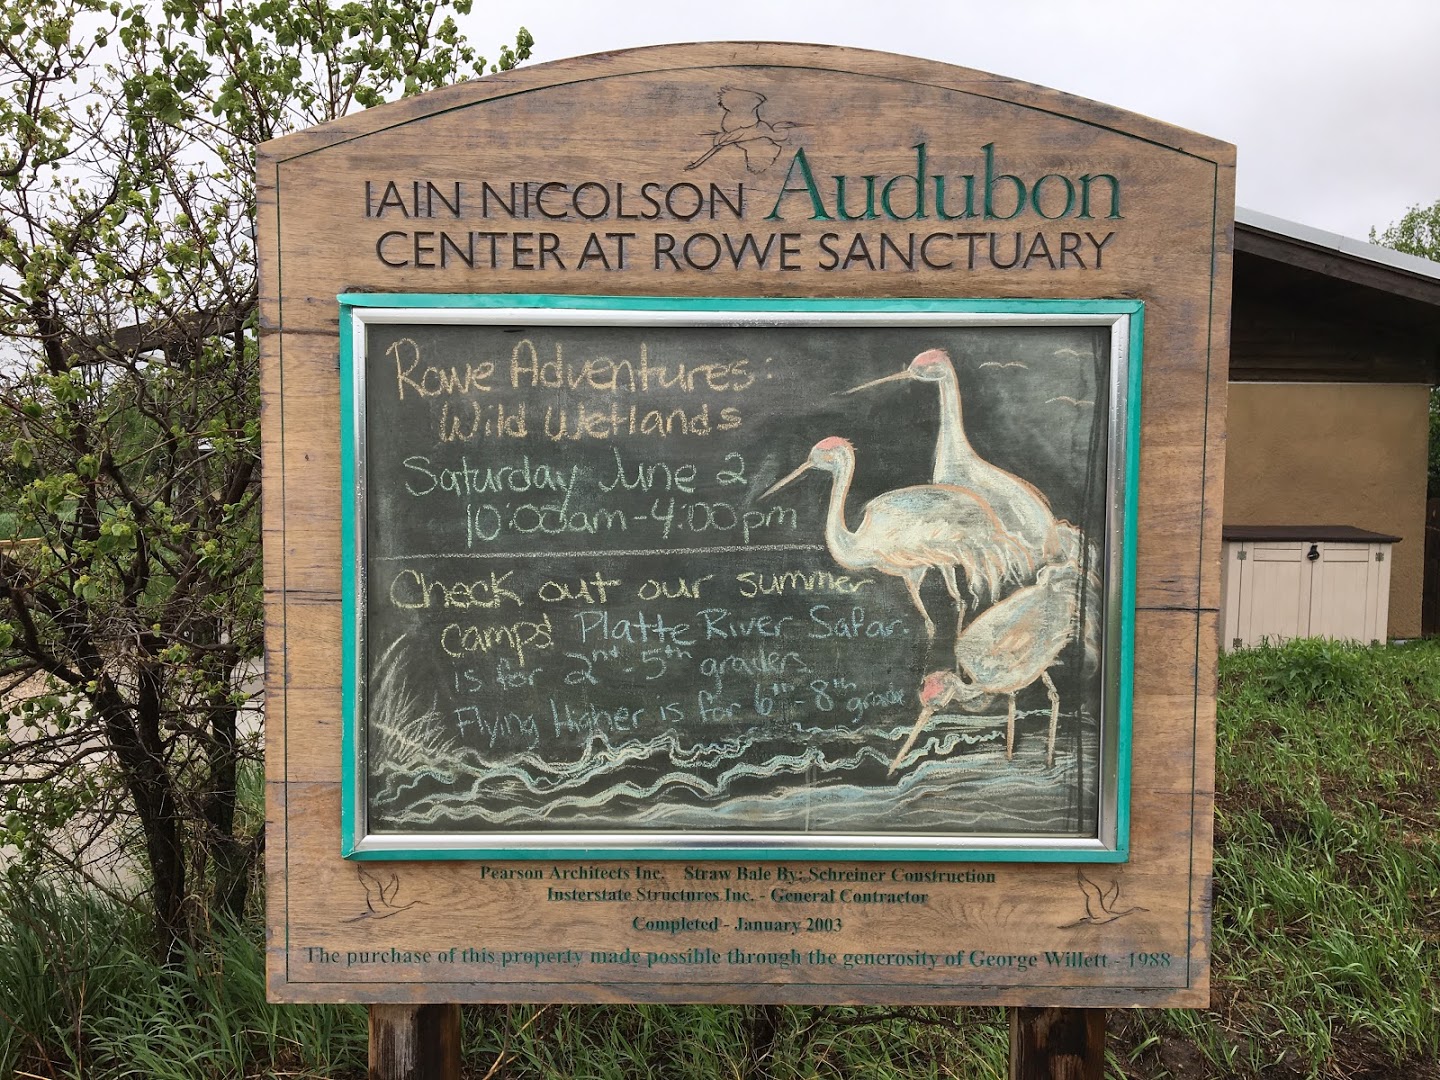 IAIN NICOLSON Audubon
CENTER AT ROWE SANCTUARY
Rowe Adventures:
Wild Wetlands
Saturday June 2
10:00am-4:00pm
Check out our summer
camps! Platte River Safari
is for 2nd-5th graders
Flying Higher is for 6th-8th grade
Pearson Architects Inc. Straw Bale By: Schreiner Construction
Insterstate Structures Inc. - General Contractor
Completed - January 2003
The purchase of this property made possible through the generosity of George Willett - 1988